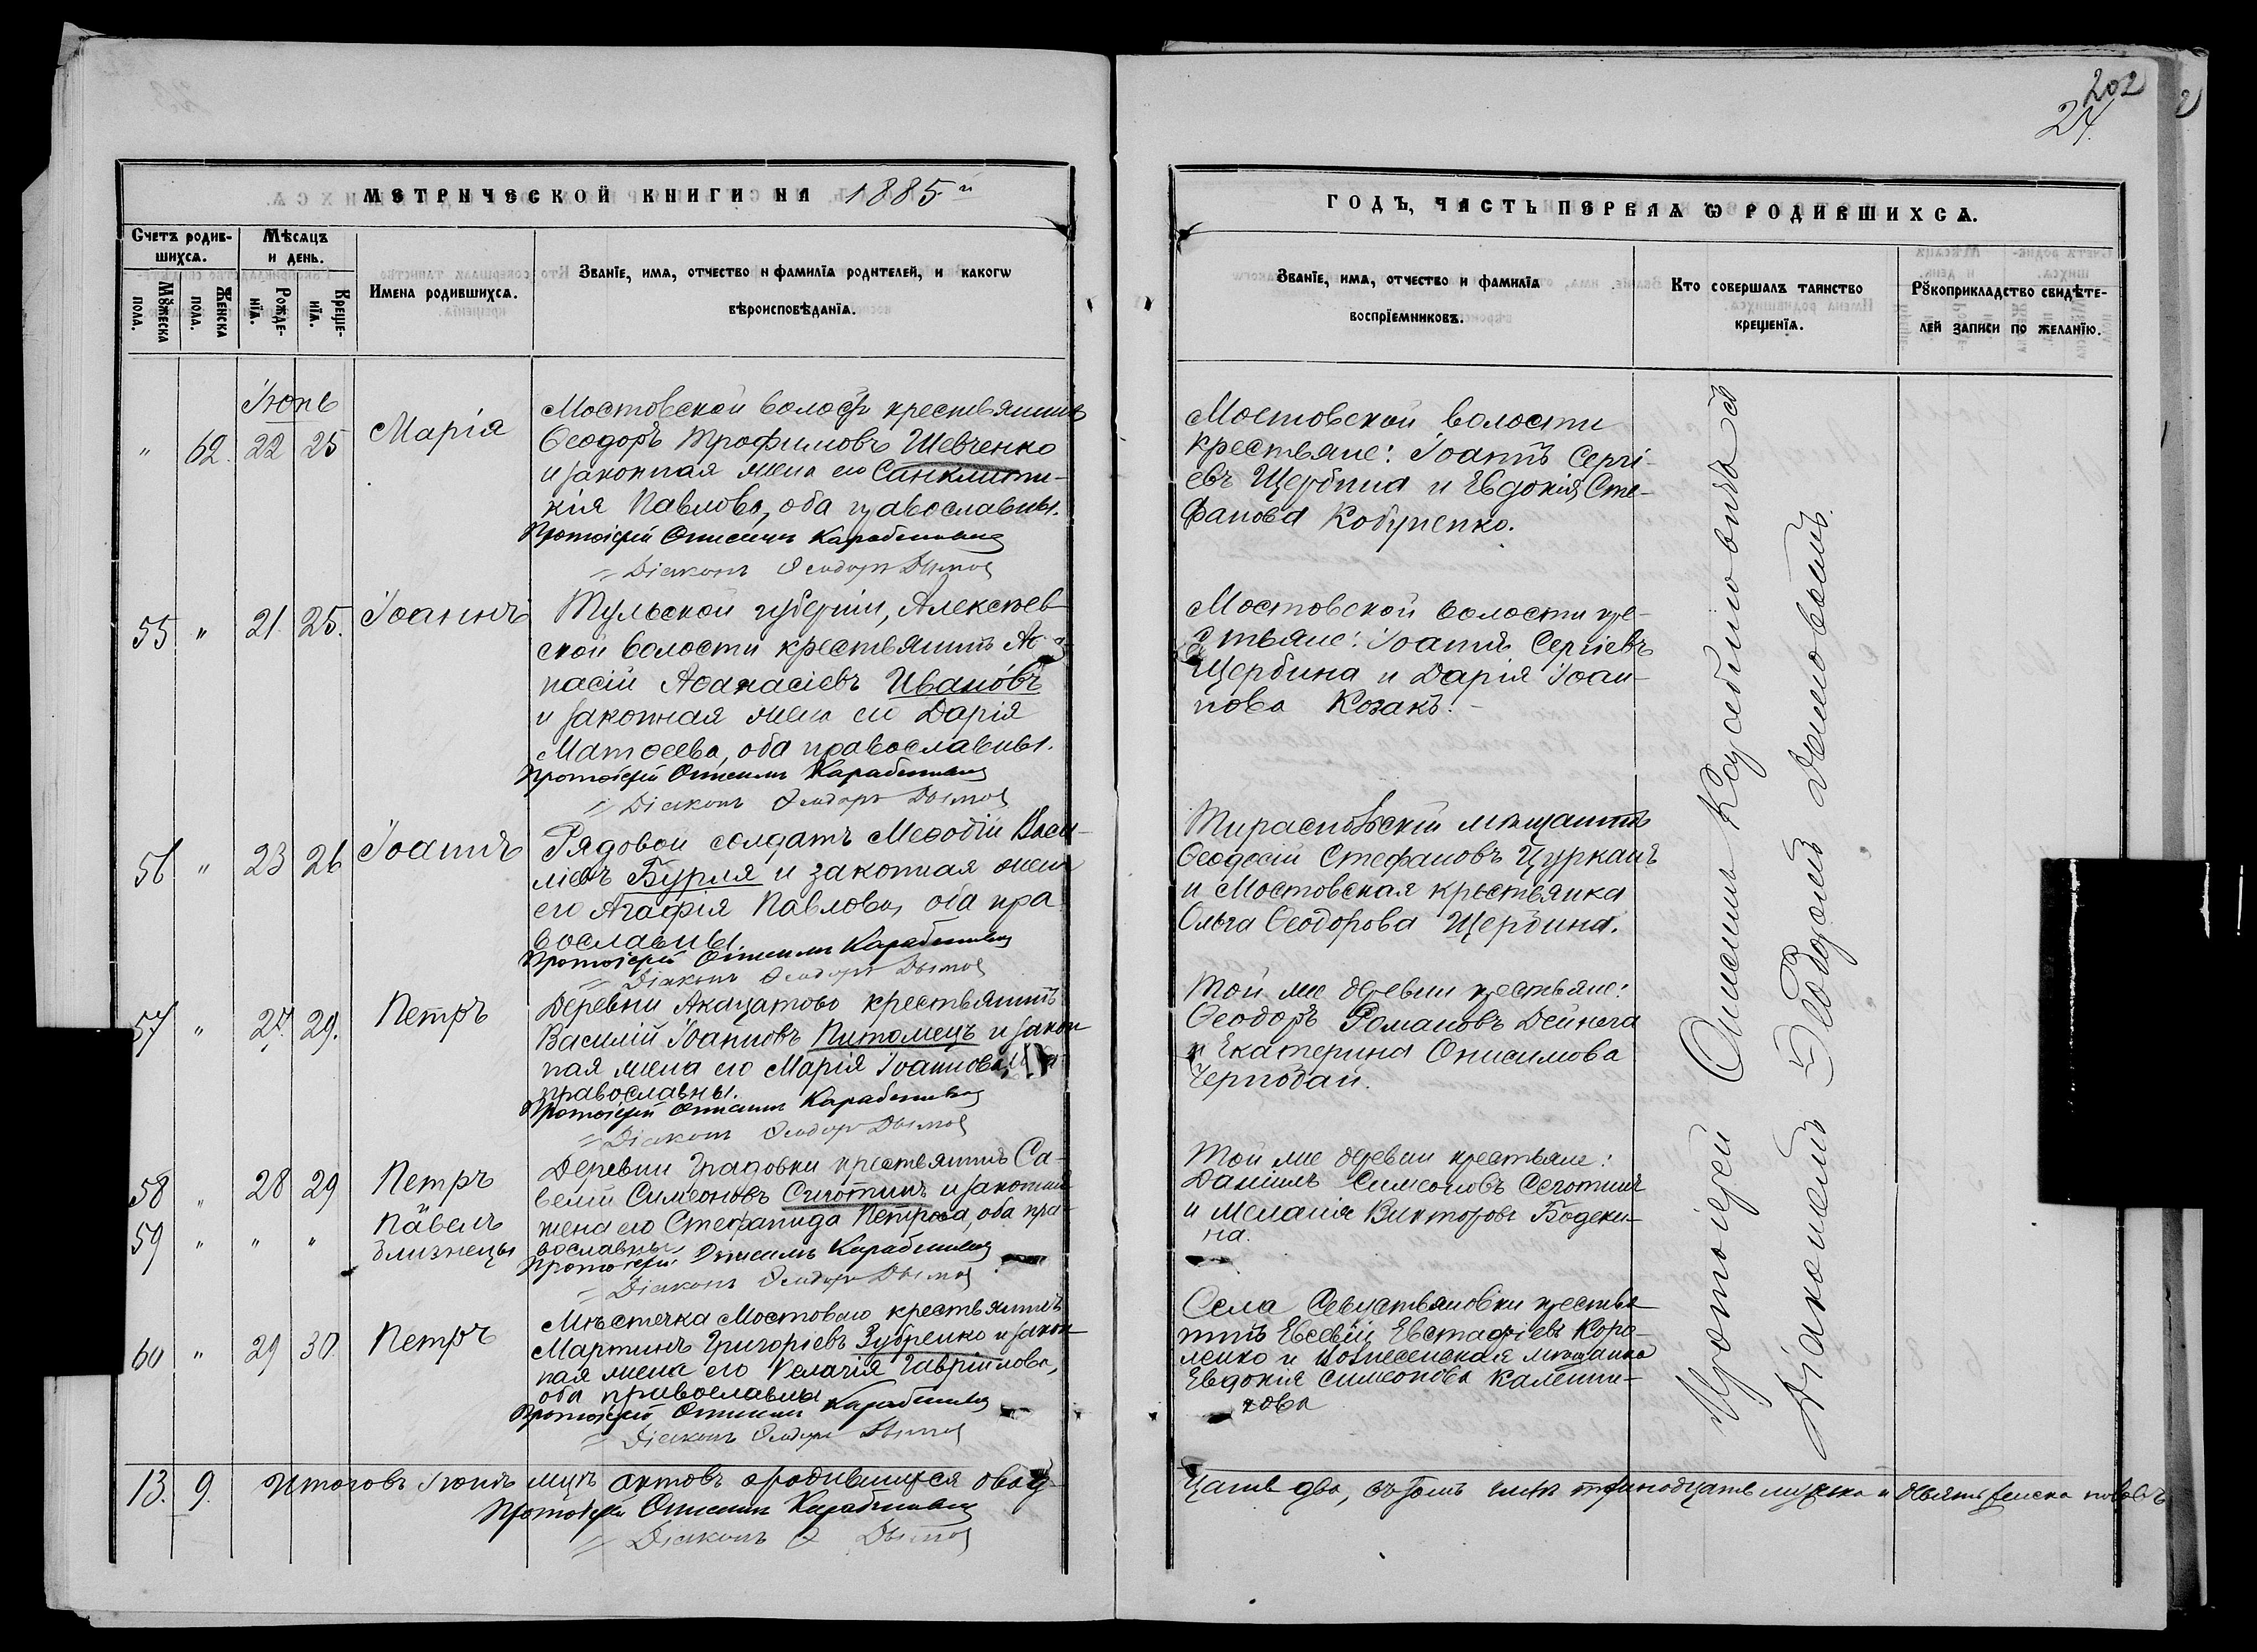 202
24.
МЕТРИЧЕСКОЙ КНИГИ НА 1885й
Счетъ родив-
шихсѧ.
Мѣсѧцъ
и день.
Мꙋжеска
пола.
Женска
пола.
Рожде-
нїѧ.
Креще-
нїѧ.
Имена родившихсѧ.
Званїе, имѧ, отчество и фамилїѧ родителей, и какогѡ
вѣроисповѣданїѧ.
Іюнь
" 62. 22 25 Марія
Мостовской волости крестьянинъ
Ѳеодоръ Трофимовъ Шевченко
и законная жена его Санклити-
кія Павлова, оба православны.
Протоіерей Онисимъ
Діаконъ Ѳеодоръ
55 " 21. 25. Іоаннъ
Тульской губерніи, Алексѣев-
ской волости крестьянинъ
насій Аѳанасіевъ Ивановъ
и законная жена его Дарія
Матѳеева, оба православны.
Протоіерей Онисимъ
Діаконъ Ѳеодоръ
56 " 23 26 Іоаннъ
Рядовой солдатъ Меѳодій Васи-
ліевъ Бурля и законная жена
его Агафія Павлова, оба пра
вославны.
Протоіерей Онисимъ
Діаконъ Ѳеодоръ
57 " 27. 29. Петръ
Деревни Акацатово крестьянинъ
Василій Іоанновъ Питомецъ и закон
ная жена его Марія Іоаннова,
православны.
Протоіерей Онисимъ
Діаконъ Ѳеодоръ
58 " 28 29 Петръ
59 " " " Павелъ
близнецы
Деревни Градовки крестьянинъ Са-
велій Симеоновъ Сиготинъ и законная
жена его Стефанида Петрова, оба пра-
вославны
Протоіерей Онисимъ
Діаконъ Ѳеодоръ
60 " 29 30 Петръ
Мѣстечка Мостоваго крестьянинъ
Мартинъ Григоріевъ Зубренко и закон
ная жена его Пелагія Гавріилова,
оба православны
Протоіерей Онисимъ
Діаконъ Ѳеодоръ
13. 9. Итоговъ Іюнь мцъ актовъ о родившихся двад-
Протоіерей Онисимъ
Діаконъ Ѳ
ГОДЪ, ЧАСТЬ ПЕРВАѦ Ѡ РОДИВШИХСѦ.
Званїе, имѧ, отчество и фамилїѧ
воспрїемниковъ.
Кто совершалъ таинство
крещенїѧ.
Рꙋкоприкладство свидѣте-
лей записи по желанїю.
Мостовской волости
крестьяне: Іоаннъ Сергі-
евъ Щербина и Евдокія Сте-
фанова Кобуненко.
Мостовской волости кре-
стьяне: Іоаннъ Сергіевъ
Щербина и Дарія Іоан-
нова Козакъ.
Тираспольскій мѣщанинъ
Ѳеодосій Стефановъ Цурканъ
и Мостовская крестьянка
Ольга Ѳеодорова Щербина.
Той же деревни крестьяне:
Ѳеодоръ Романовъ Дейнега
и Екатерина Онисимова
Чернобай.
Той же деревни крестьяне:
Даніилъ Симеоновъ Сиготинъ
и Меланія Викторова Бодеки-
на.
Села Севастьяновки крестья
нинъ Евсевій Евстафіевъ Коро-
ленко и Вознесенская мѣщанка
Евдокія Симеонова Калени-
кова
Протоіерей Онисимъ
Діакономъ Ѳеодоромъ
цать два, въ томъ числѣ тринадцать мужска и девять женска половъ